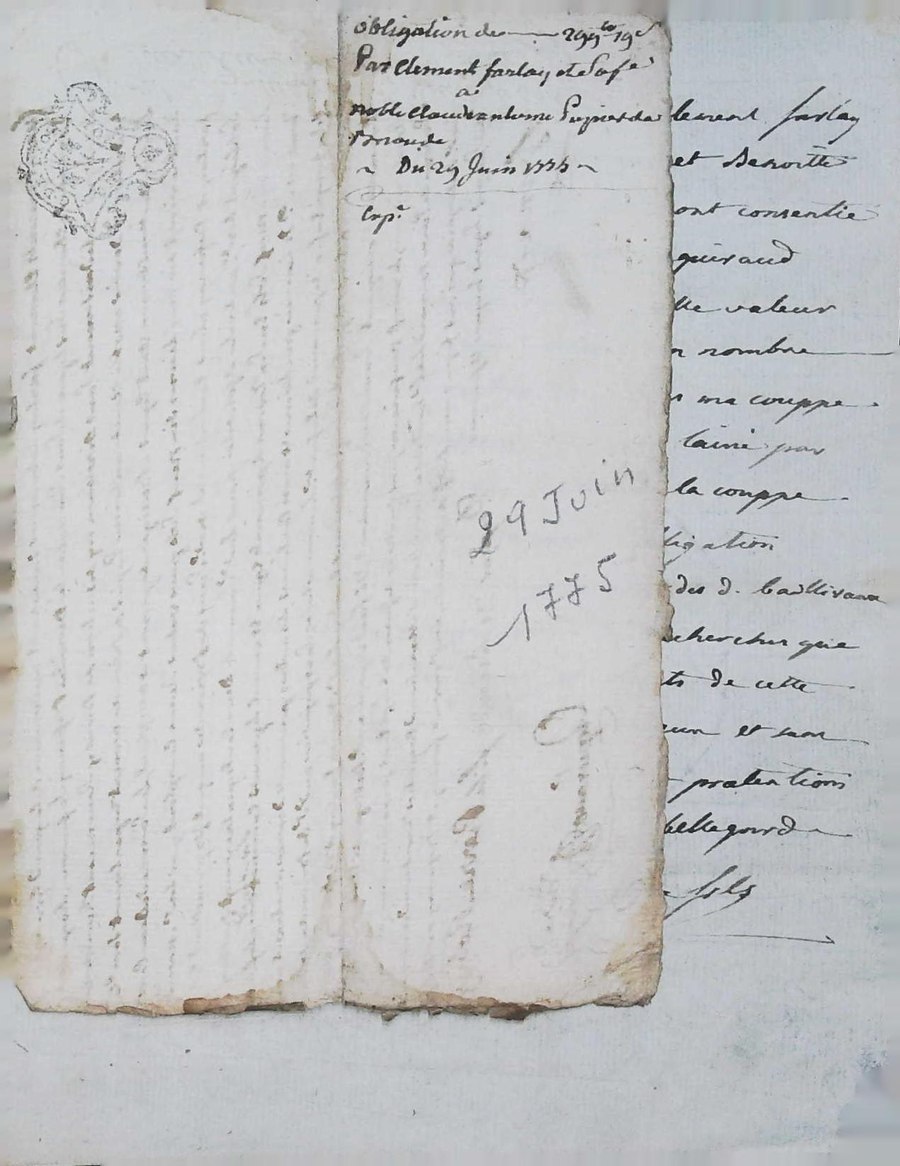 obligation de 299 ᵗᵗ 19 ˢ
Par Clement farlay et Sa fe
a
noble Claude antoine Pupier de
Brioude
~ Du 29 Juin 1775 ~
Exp.
29 Juin
1775
lement farlay
et Benoitte
ont consentie
guiraud
lle valeur
n nombre
ma couppe
laine par
la couppe
ligation
des d.
chercher que
ts de cette
et son
pretentions
bellegarde
fils